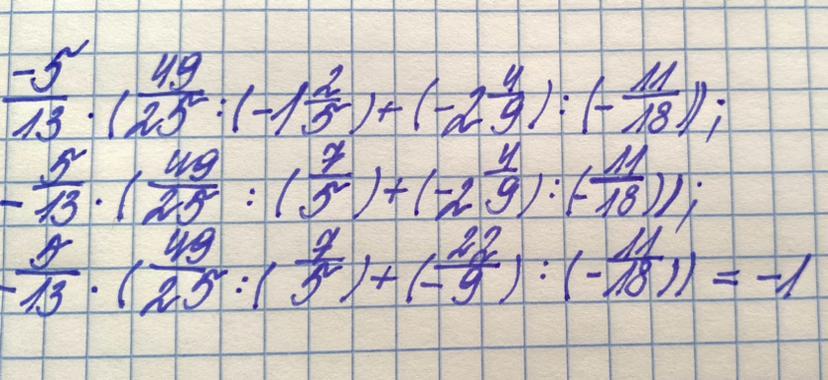 -5/13 · (49/25 : (-1 2/5) + (-2 4/9) : (-11/18));
-5/13 · (49/25 : (7/5) + (-2 4/9) : (-11/18));
-5/13 · (49/25 : (7/5) + (-22/9) : (-11/18)) = -1